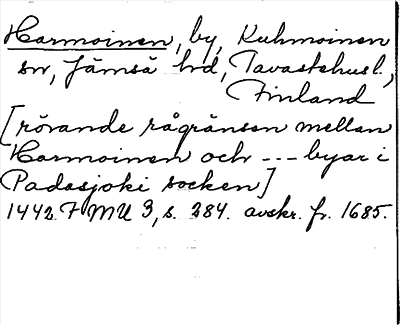 Harmoinen, by, Kuhmoinen
sn, Jämsä hd, Tavastehusl.,
Finland
[rörande rågränsen mellan
Harmoinen och --- byar i
Padasjoki socken]
1442 FMU 3, s. 284. avskr. fr. 1685.